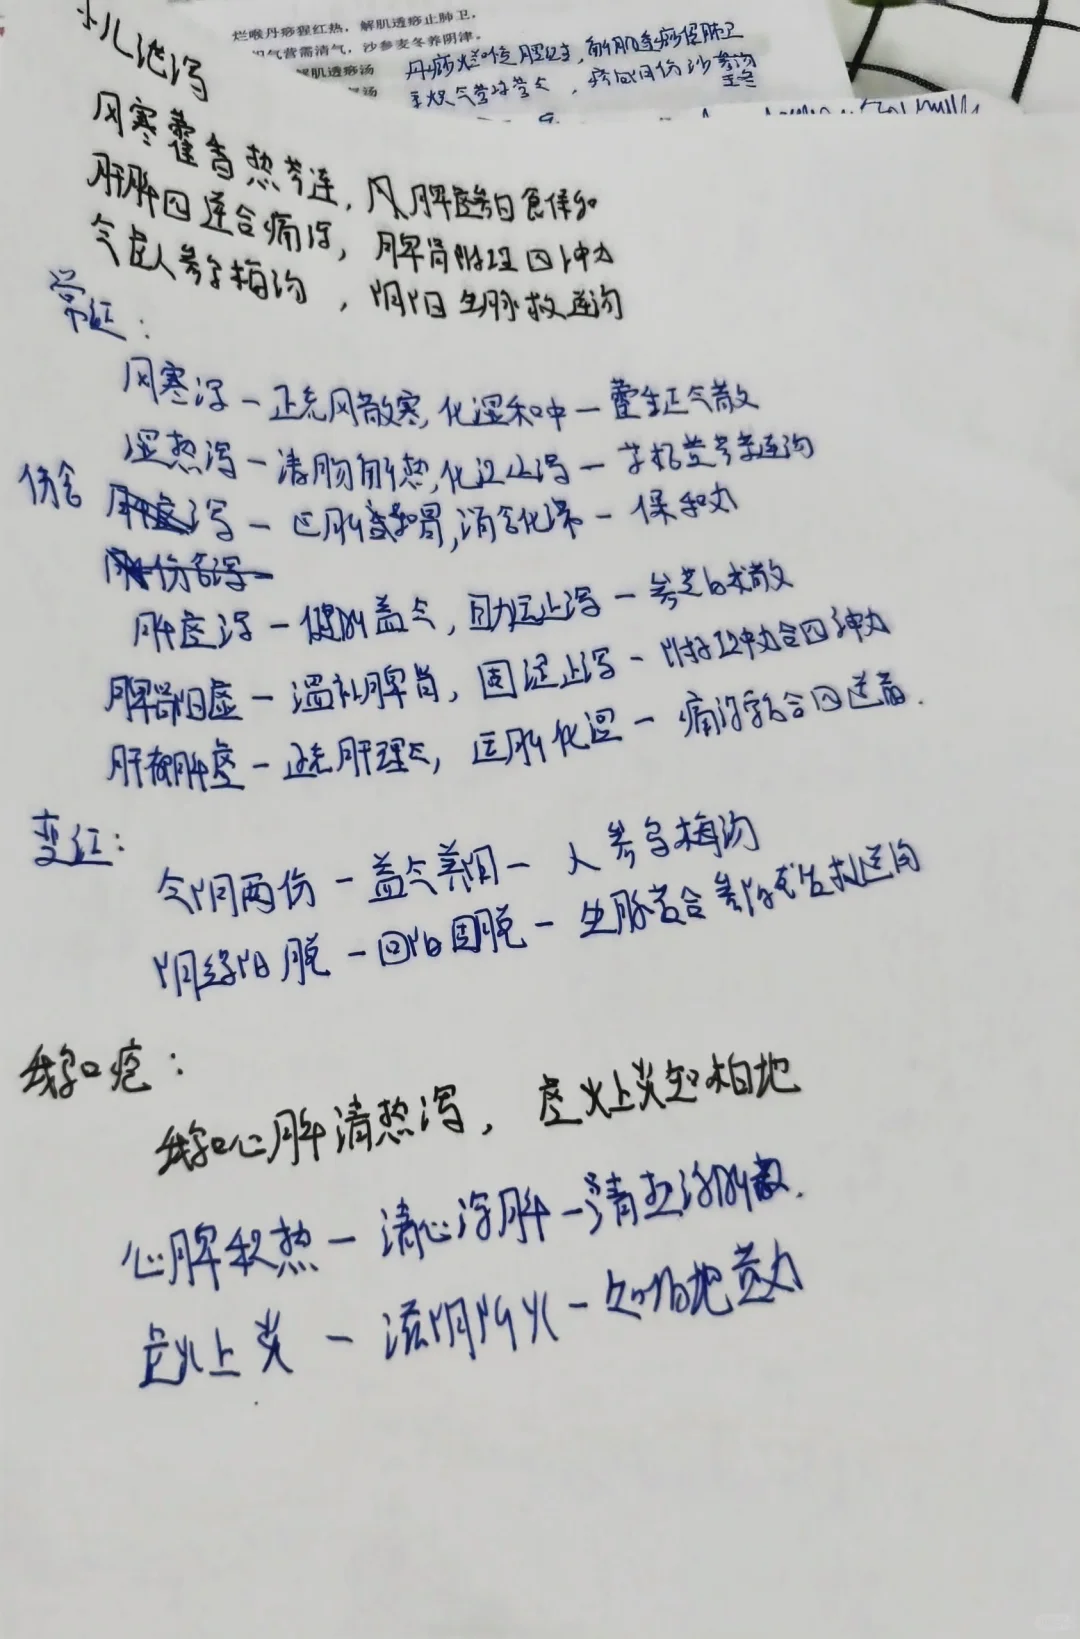 烂喉丹痧猩红热，解肌透痧止肺卫，
气营需清气，沙参麦冬养阴津。
解肌透痧汤
汤
小儿泄泻
风寒藿香热芩连，风脾虚参白食保和
肝脾四逆合痛泻，脾肾附理四神力
气虚人参乌梅汤，阴阳生脉救逆汤
常证：
风寒泻－疏风散寒，化湿和中－藿香正气散
湿热泻－清肠解热，化湿止泻－葛根黄芩黄连汤
伤食泻－运脾和胃，消食化滞－保和丸
伤食泻－
脾虚泻－健脾益气，助运止泻－参苓白术散
脾肾阳虚－温补脾肾，固涩止泻－附子理中丸合四神丸
肝郁脾虚－疏肝理气，运脾化湿－痛泻方合四逆散．
变证：
气阴两伤－益气养阴－人参乌梅汤
阴竭阳脱－回阳固脱－生脉散合参附龙牡救逆汤
鹅口疮：
鹅口心脾清热泻，虚火上炎知柏地
心脾积热－清心泻脾－清热泻脾散．
虚火上炎－滋阴降火－知柏地黄丸